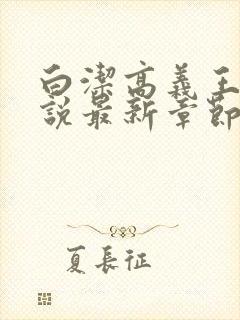 白潔高義王
說最新章節
夏長征